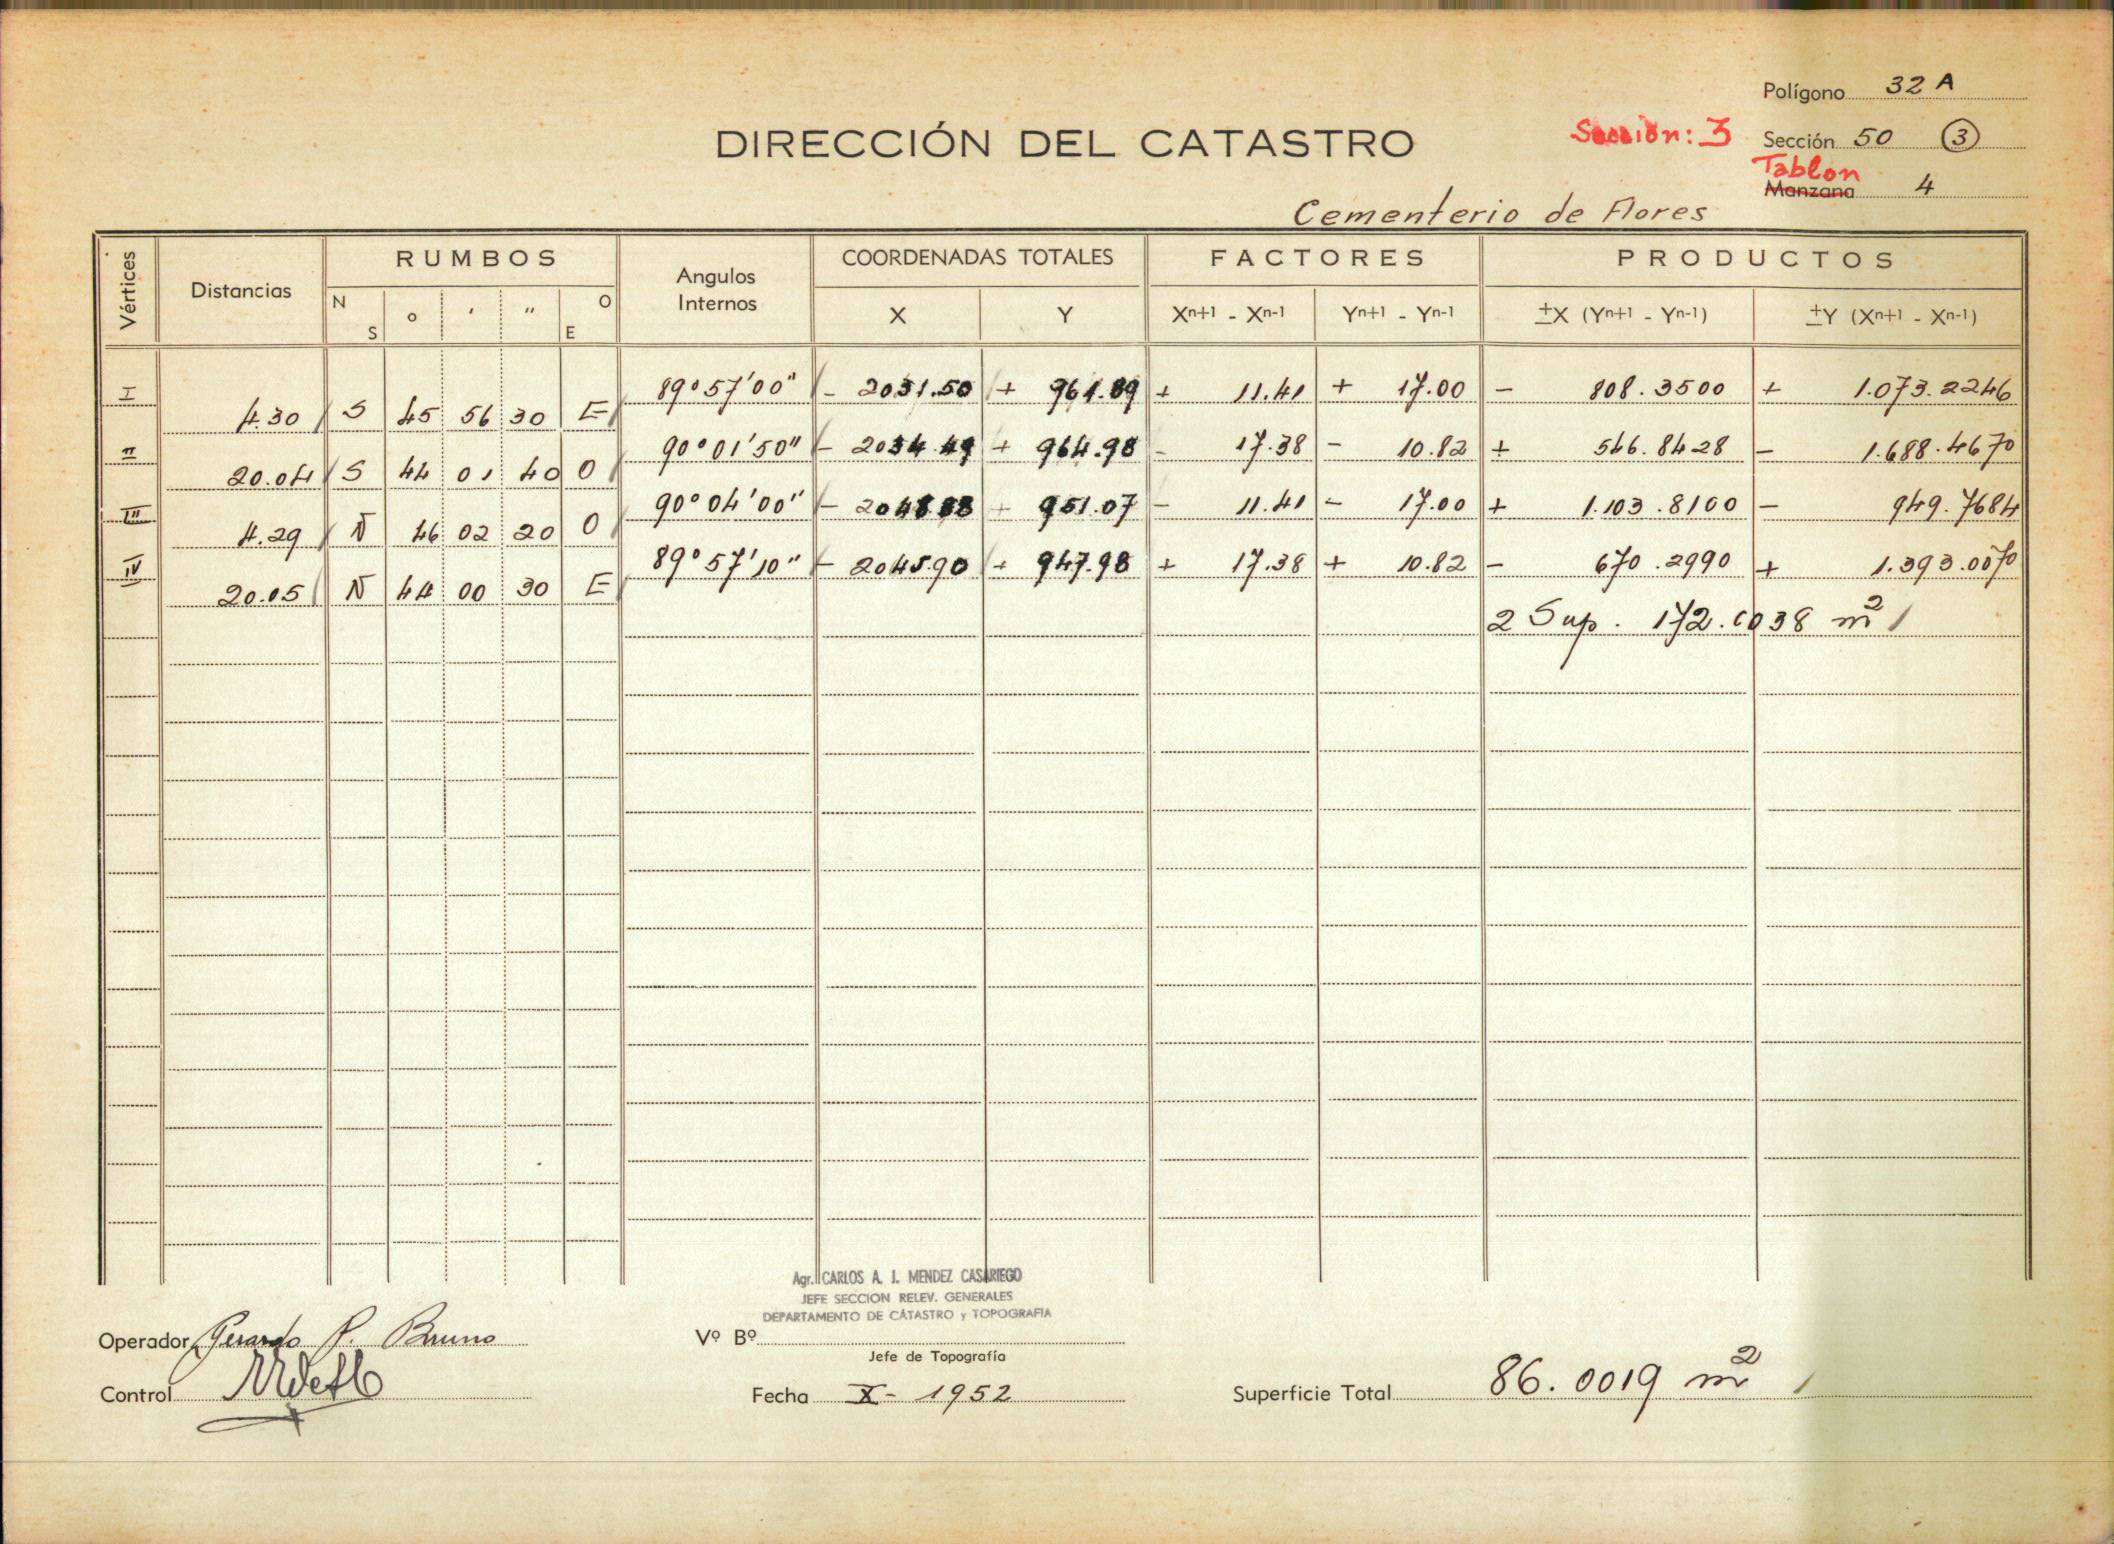 Polígono 32 A
DIRECCIÓN DEL CATASTRO
Sección: 3
Sección 50 ③
Tablon
Manzana 4
Cementerio de Flores
Vértices Distancias RUMBOS Angulos Internos COORDENADAS TOTALES FACTORES PRODUCTOS
N S o ' " O E X Y Xn+1 - Xn-1 Yn+1 - Yn-1 ±X (Yn+1 - Yn-1) ±Y (Xn+1 - Xn-1)
I 89°57'00" - 2031.50 + 961.89 + 11.41 + 17.00 - 808.3500 + 1.073.2246
4.30 S 45 56 30 E
II 90°01'50" - 2034.49 + 964.98 - 17.38 - 10.82 + 546.8428 - 1.688.4670
20.04 S 44 01 40 O
III 90°04'00" - 2048.88 + 951.07 - 11.41 - 17.00 + 1.103.8100 - 949.7684
4.29 N 46 02 20 O
IV 89°57'10" - 2045.90 + 947.98 + 17.38 + 10.82 - 670.2990 + 1.393.0070
20.05 N 44 00 30 E
2 Sup. 172.0038 m²
Agr. CARLOS A. J. MENDEZ CASARIEGO
JEFE SECCION RELEV. GENERALES
DEPARTAMENTO DE CATASTRO y TOPOGRAFIA
Operador Gerardo P. Bruno
Vº Bº
Jefe de Topografía
Control
Fecha X - 1952
Superficie Total 86.0019 m²